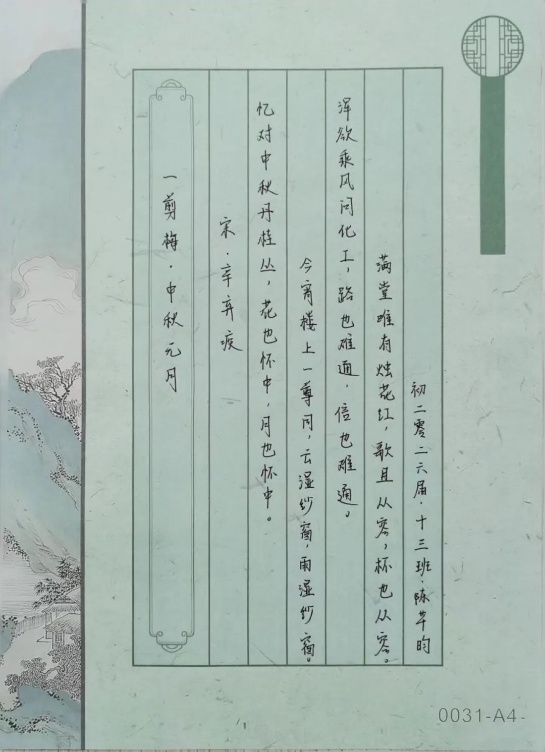 一剪梅·中秋元月
宋·辛弃疾
忆对中秋丹桂丛，花也怀中，月也怀中。
今宵楼上一尊同，云湿纱窗，雨湿纱窗。
浑欲乘风问化工，路也难通，信也难通。
满堂唯有烛花红，歌且从容，杯也从容。
初二零二六届·十三班·陈芊昀
0031-A4-